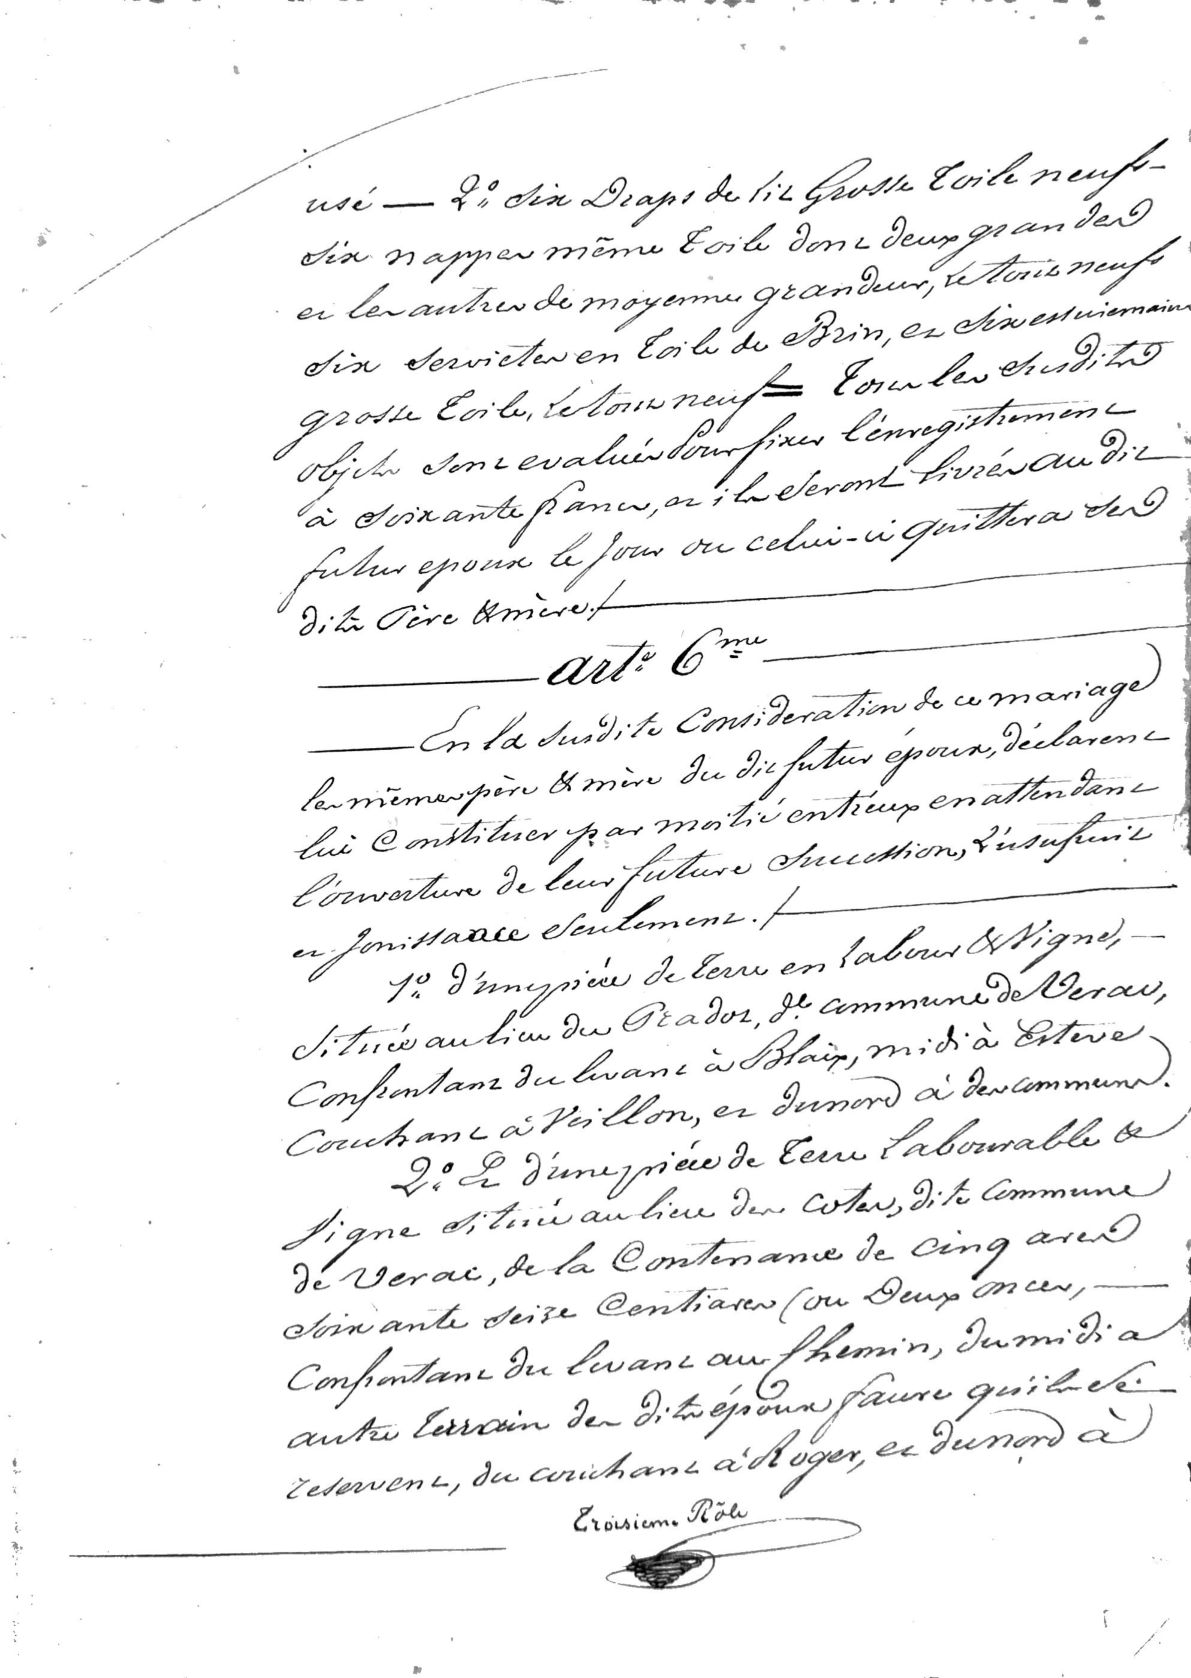 usé — 2.° Six Draps de Lit Grosse Toile neufs —
Six nappes même Toile dont deux grandes
et les autres de moyenne grandeur, Le tout neufs
Six Serviettes en Toile de Brin, et Six essuiemains
grosse Toile, Le tout neuf = Tous les Susdits
objets sont evalués Pour fixer l'énregistrement
à Soixante francs, et ils Seront Livrés au dit
futur epoux le Jour ou celui-ci quittera Ses
dits Père & mère./
art.e 6me
En la Susdite Consideration de ce mariage
les mêmes père & mère du dit futur époux, déclarent
lui Constituer par moitié entr'eux en attendant
l'ouverture de leur future Succession, L'usufruit
et Jouissance Seulement./
1.° d'une pièce de Terre en Labour & Vigne, —
Située au lieu du Pradot, d.e commune de Verac,
Confrontant du levant à Blaix, midi à Esteve
Couchant à Veillon, et du nord à des communs.
2.° Et d'une pièce de Terre Labourable &
Vigne Située au lieu des cotes, dite Commune
de Verac, de la Contenance de cinq ares
Soixante Seize Centiares (ou Deux onces, —
Confrontant du levant au Chemin, du midi a
autre Terrain des dits époux faure qu'ils Se
reservent, du couchant à Roger, et du nord à
Troisieme Rôle